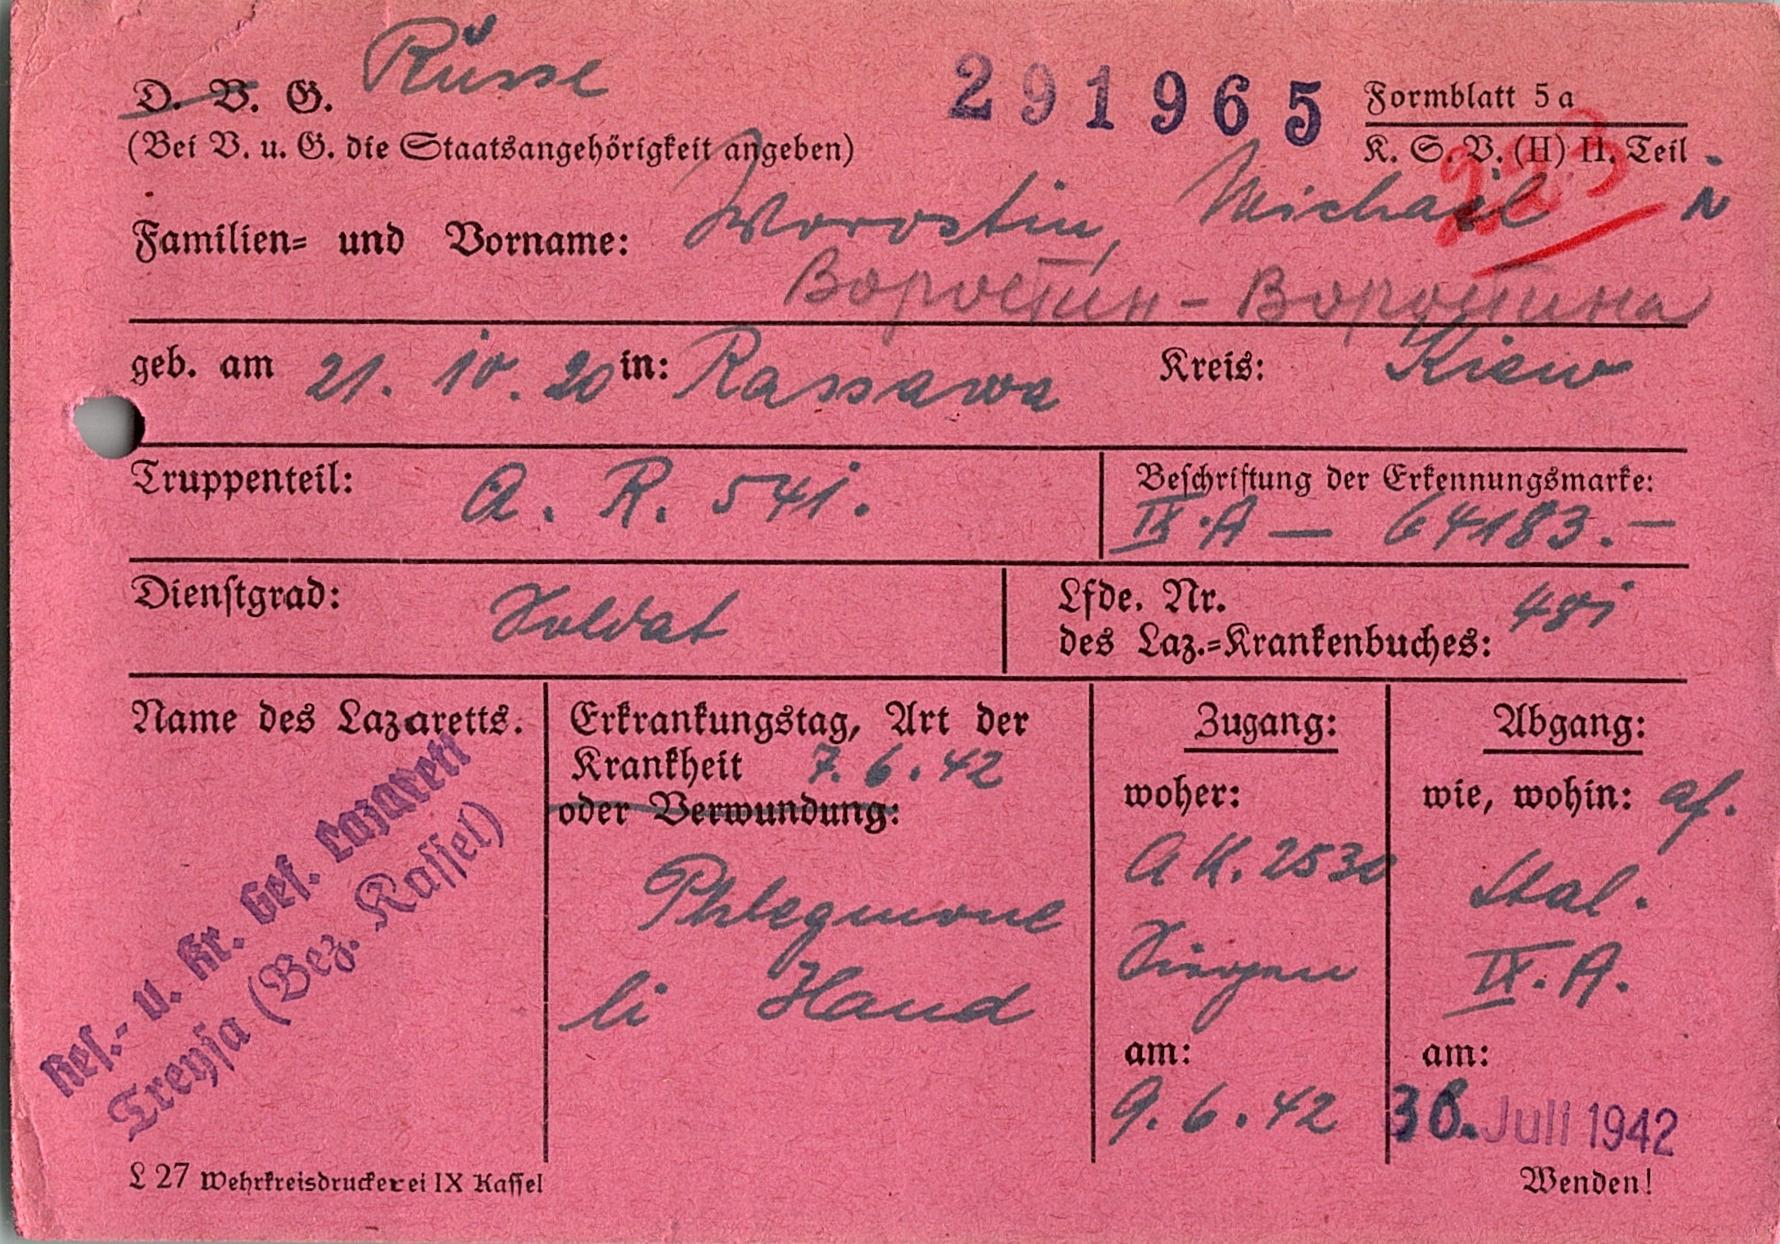 D. V. G. Russe
291965
Formblatt 5 a
(Bei V. u. G. die Staatsangehörigkeit angeben)
K. S. V. (H) II. Teil
223
Familien= und Vorname: Worostin, Michail
Воростин - Воростина
geb. am 21. 10. 20 in: Rassawa Kreis: Kiew
Truppenteil: A. R. 541.
Beschriftung der Erkennungsmarke:
IX. A — 64183. —
Dienstgrad: Soldat
Lfde. Nr.
des Laz.=Krankenbuches: 481
Name des Lazaretts.
Res.- u. Kr. Gef. Lazarett
Treysa (Bez. Kassel)
Erkrankungstag, Art der
Krankheit 7. 6. 42
oder Verwundung:
Phlegmone
li Hand
Zugang:
woher:
A K. 2530
am:
9. 6. 42
Abgang:
wie, wohin: af.
Stal.
IX. A.
am:
Juli 1942
L 27 Wehrkreisdruckerei IX Kassel
Wenden!